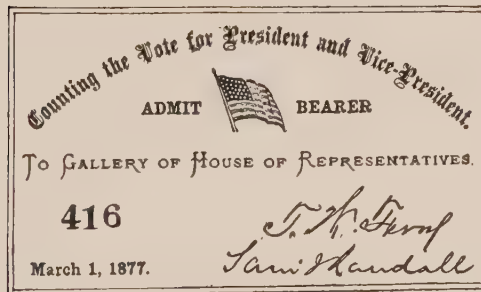 Counting the Vote for President and Vice-President.
ADMIT BEARER
TO GALLERY OF HOUSE OF REPRESENTATIVES.
416
T. W. Ferry
March 1, 1877.
Sam J Randall